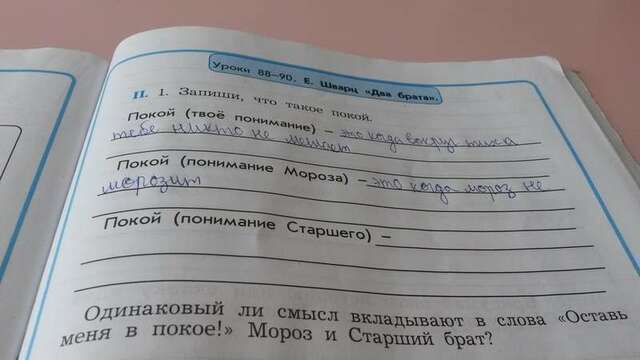 Уроки 88–90. Е. Шварц «Два брата».
II. 1. Запиши, что такое покой.
Покой (твоё понимание) – это когда вокруг тиха
тебе никто не мешает
Покой (понимание Мороза) – это когда мороз не
морозит
Покой (понимание Старшего) –
Одинаковый ли смысл вкладывают в слова «Оставь
меня в покое!» Мороз и Старший брат?